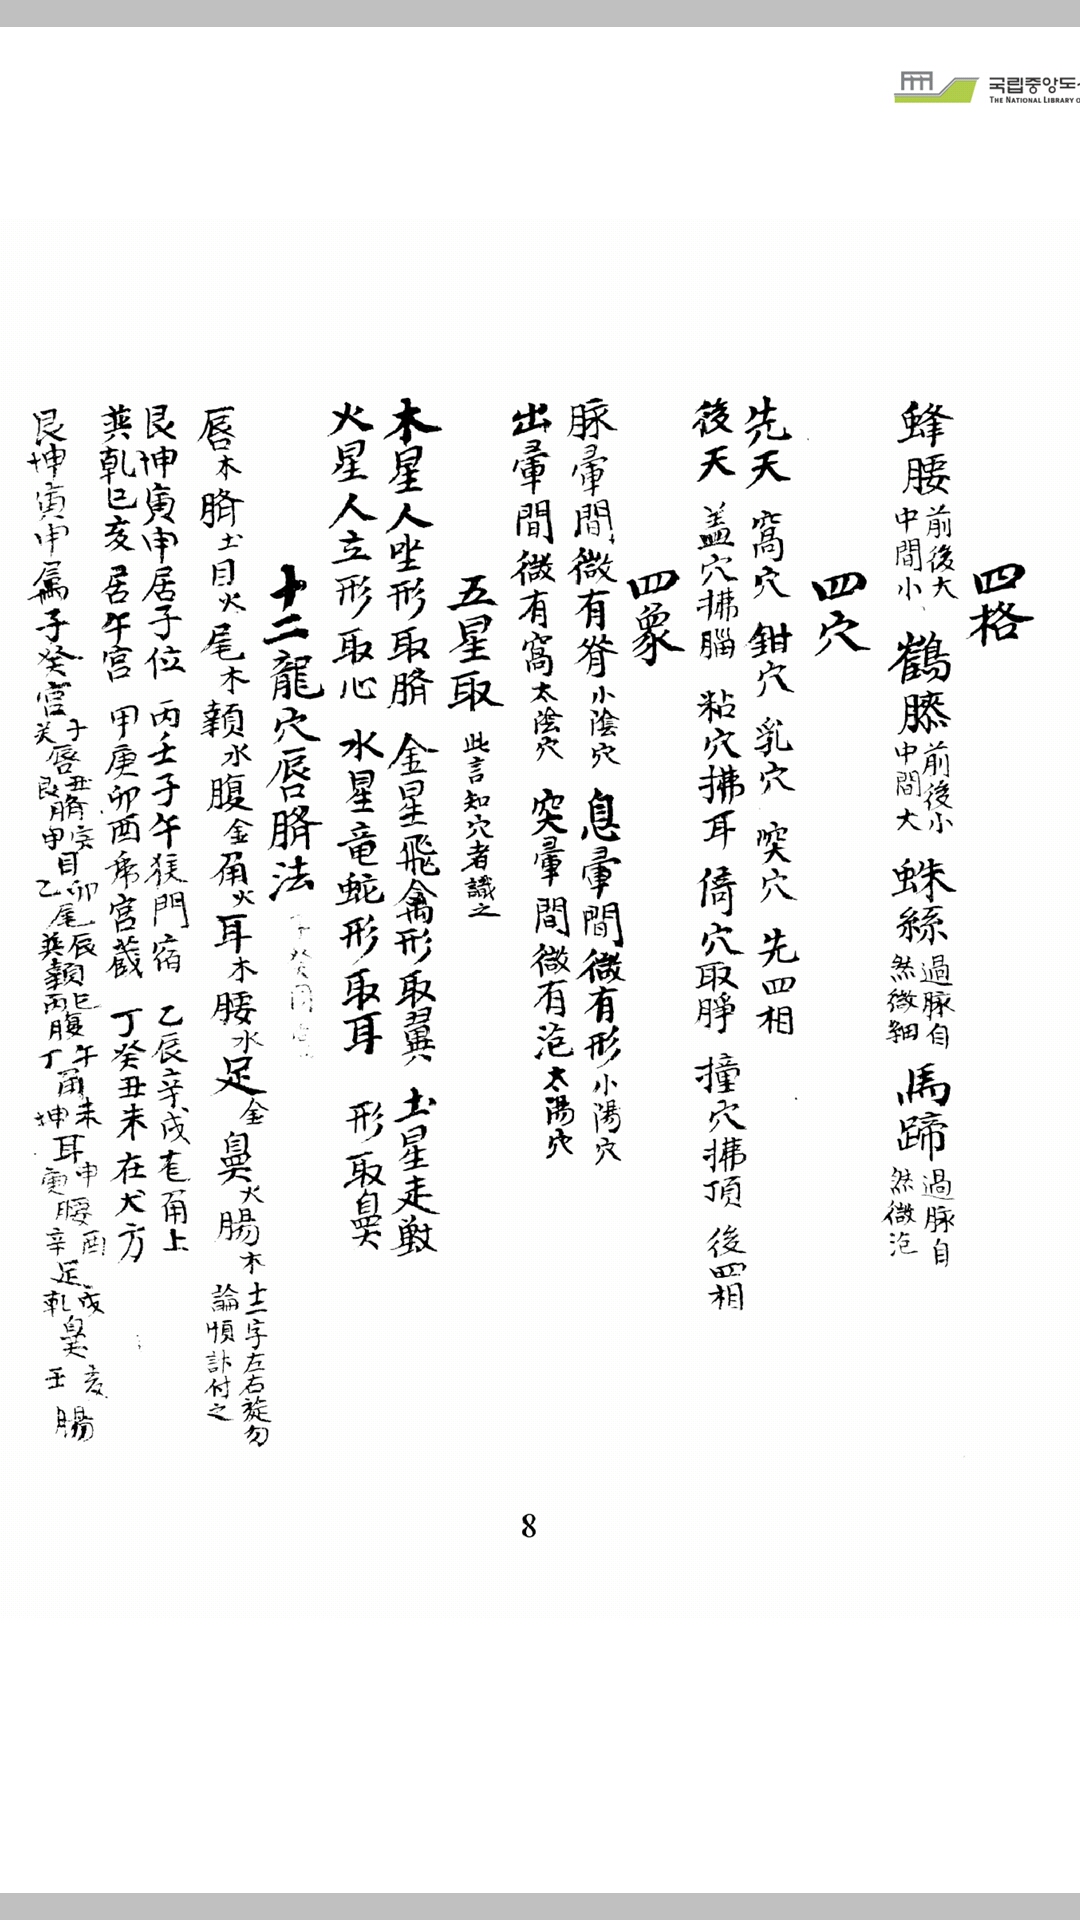 국립중앙도
THE NATIONAL LIBRARY O
四格
蜂腰 前後大 中間小 鶴膝 前後小 中間大 蛛絲 過脈自 然微細 馬蹄 過脈自 然微泡
四穴
先天 窩穴 鉗穴 乳穴 突穴 先四相
後天 盖穴拂腦 粘穴拂耳 倚穴取睜 撞穴拂頂 後四相
四象
脈暈間微有脊 小陰穴 息暈間微有形 小陽穴
出暈間微有窩 太陰穴 突暈間微有泡 太陽穴
五星取 此言知穴者識之
木星人坐形取臍 金星飛禽形取翼 土星走獸
火星人立形取心 水星竜蛇形取耳 形取鼻
十二龍穴唇臍法
唇木臍土目火尾木顙水腹金角火耳木腰水足金鼻火腸木 十二字左右旋勿 論順 付之
艮坤寅申居子位 丙壬子午 門宿 乙辰辛戌 角上
巽乾巳亥居午宮 甲庚卯酉 宮藏 丁癸丑未在犬方
艮坤寅申属子癸宮 子唇丑臍寅目卯尾辰顙巳腹午角未耳申腰酉足戌鼻亥腸 艮 甲 乙 巽 丙 丁 坤 庚 辛 乾 壬
8